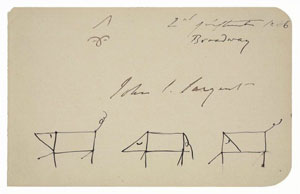 2nd
Broadway
John S. Sargent